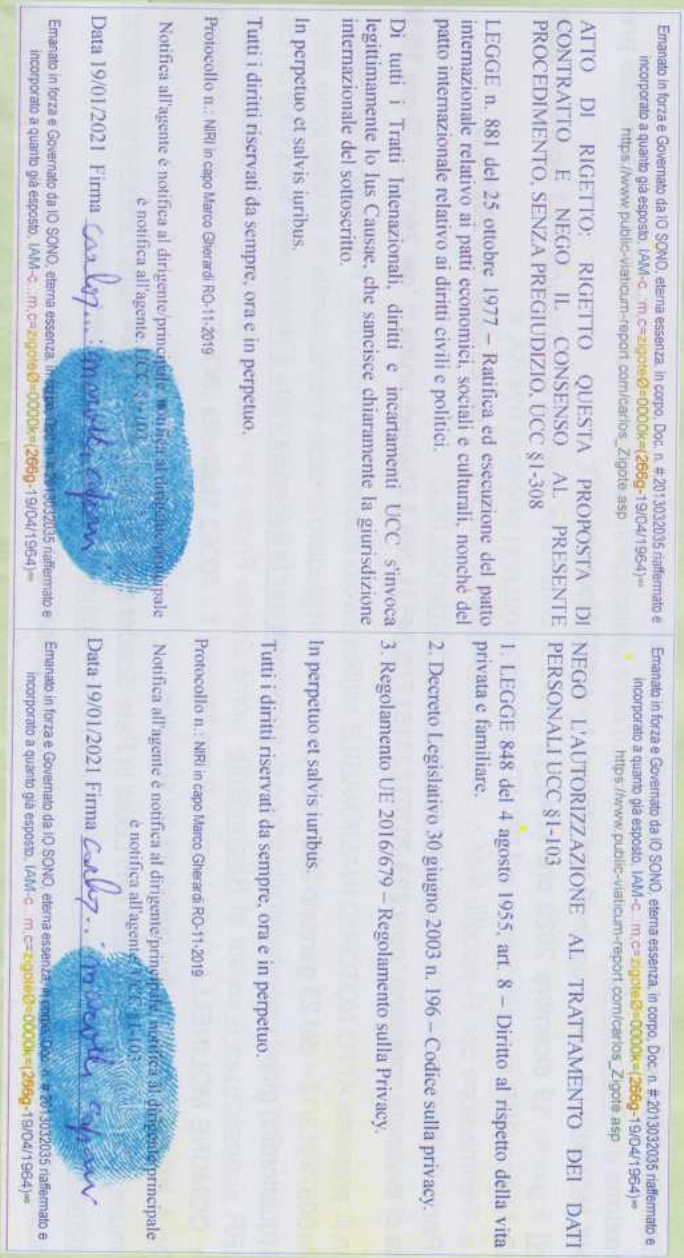 Emanato in forza e Governato da IO SONO, eterna essenza, in corpo. Doc. n. # 2013032035 riaffermato e
incorporato a quanto già esposto. IAM-c...m,c=zigoteØ=0000k=(266g-19/04/1964)∞
https://www.public-viaticum-report.com/carlos_Zigote.asp
ATTO DI RIGETTO: RIGETTO QUESTA PROPOSTA DI
CONTRATTO E NEGO IL CONSENSO AL PRESENTE
PROCEDIMENTO, SENZA PREGIUDIZIO, UCC §1-308
LEGGE n. 881 del 25 ottobre 1977 – Ratifica ed esecuzione del patto
internazionale relativo ai patti economici, sociali e culturali, nonché del
patto internazionale relativo ai diritti civili e politici.
Di tutti i Tratti Intenazionali, diritti e incartamenti UCC s'invoca
legittimamente lo Ius Causae, che sancisce chiaramente la giurisdizione
internazionale del sottoscritto.
In perpetuo et salvis iuribus.
Tutti i diritti riservati da sempre, ora e in perpetuo.
Protocollo n.: NIRI in capo Marco Gherardi RO-11-2019
Notifica all'agente è notifica al dirigente/principale notifica al dirigente/principale
è notifica all'agente. UCC §1-103
Data 19/01/2021 Firma
Emanato in forza e Governato da IO SONO, eterna essenza, in corpo. Doc. n. # 2013032035 riaffermato e
incorporato a quanto già esposto. IAM-c...m,c=zigoteØ=0000k=(266g-19/04/1964)∞
Emanato in forza e Governato da IO SONO, eterna essenza, in corpo. Doc. n. # 2013032035 riaffermato e
incorporato a quanto già esposto. IAM-c...m,c=zigoteØ=0000k=(266g-19/04/1964)∞
https://www.public-viaticum-report.com/carlos_Zigote.asp
NEGO L'AUTORIZZAZIONE AL TRATTAMENTO DEI DATI
PERSONALI UCC §1-103
1. LEGGE 848 del 4 agosto 1955, art. 8 – Diritto al rispetto della vita
privata e familiare.
2. Decreto Legislativo 30 giugno 2003 n. 196 – Codice sulla privacy.
3. Regolamento UE 2016/679 – Regolamento sulla Privacy.
In perpetuo et salvis iuribus.
Tutti i diritti riservati da sempre, ora e in perpetuo.
Protocollo n.: NIRI in capo Marco Gherardi RO-11-2019
Notifica all'agente è notifica al dirigente/principale notifica al dirigente/principale
è notifica all'agente. UCC §1-103
Data 19/01/2021 Firma
Emanato in forza e Governato da IO SONO, eterna essenza, in corpo. Doc. n. # 2013032035 riaffermato e
incorporato a quanto già esposto. IAM-c...m,c=zigoteØ=0000k=(266g-19/04/1964)∞